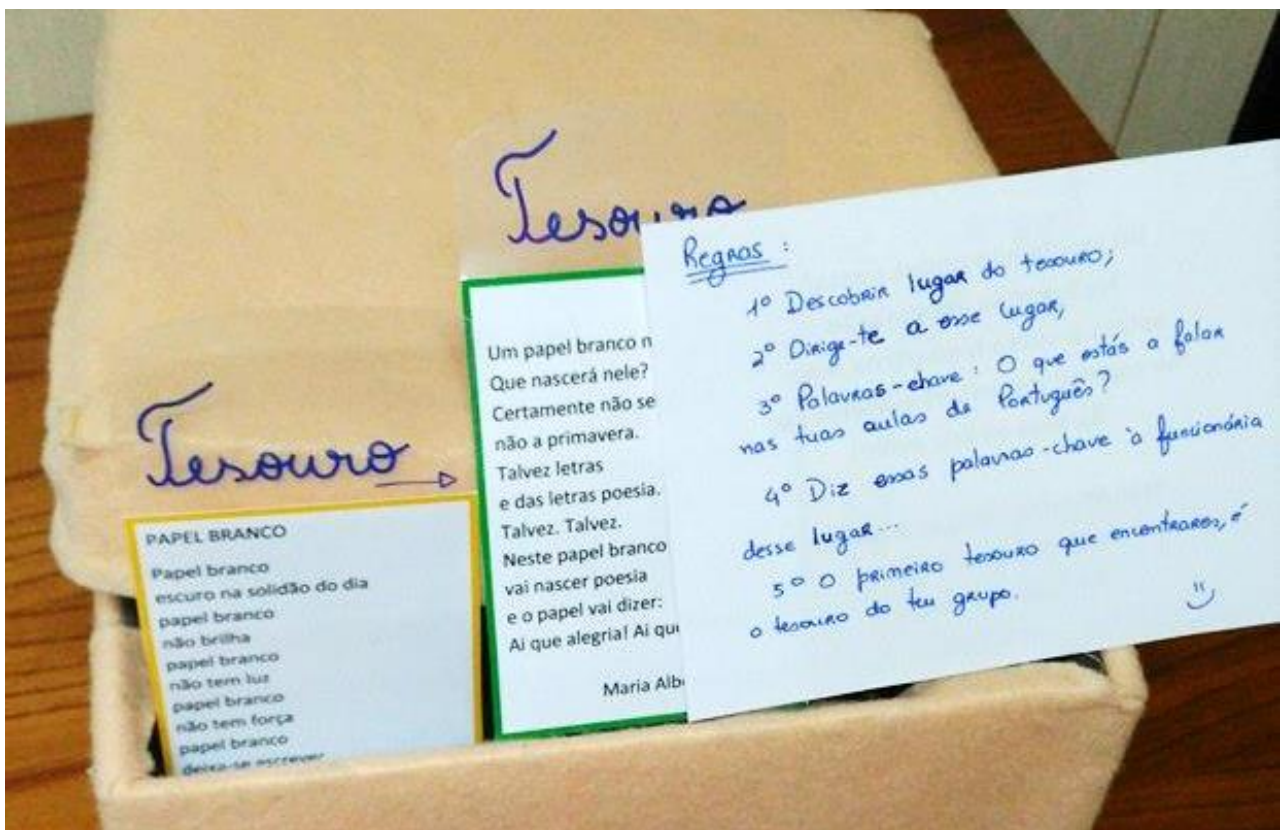 Tesouro
PAPEL BRANCO
Papel branco
escuro na solidão do dia
papel branco
não brilha
papel branco
não tem luz
papel branco
não tem força
papel branco
deixa-se escrever
Tesouro
Um papel branco n
Que nascerá nele?
Certamente não se
não a primavera.
Talvez letras
e das letras poesia.
Talvez. Talvez.
Neste papel branco
vai nascer poesia
e o papel vai dizer:
Ai que alegria! Ai que
Maria Alb
Regras:
1º Descobrir lugar do tesouro;
2º Dirige-te a esse lugar,
3º Palavras-chave: O que estás a falar
nas tuas aulas de Português?
4º Diz essas palavras-chave à funcionária
desse lugar...
5º O primeiro tesouro que encontrares, é
o tesouro do teu grupo.